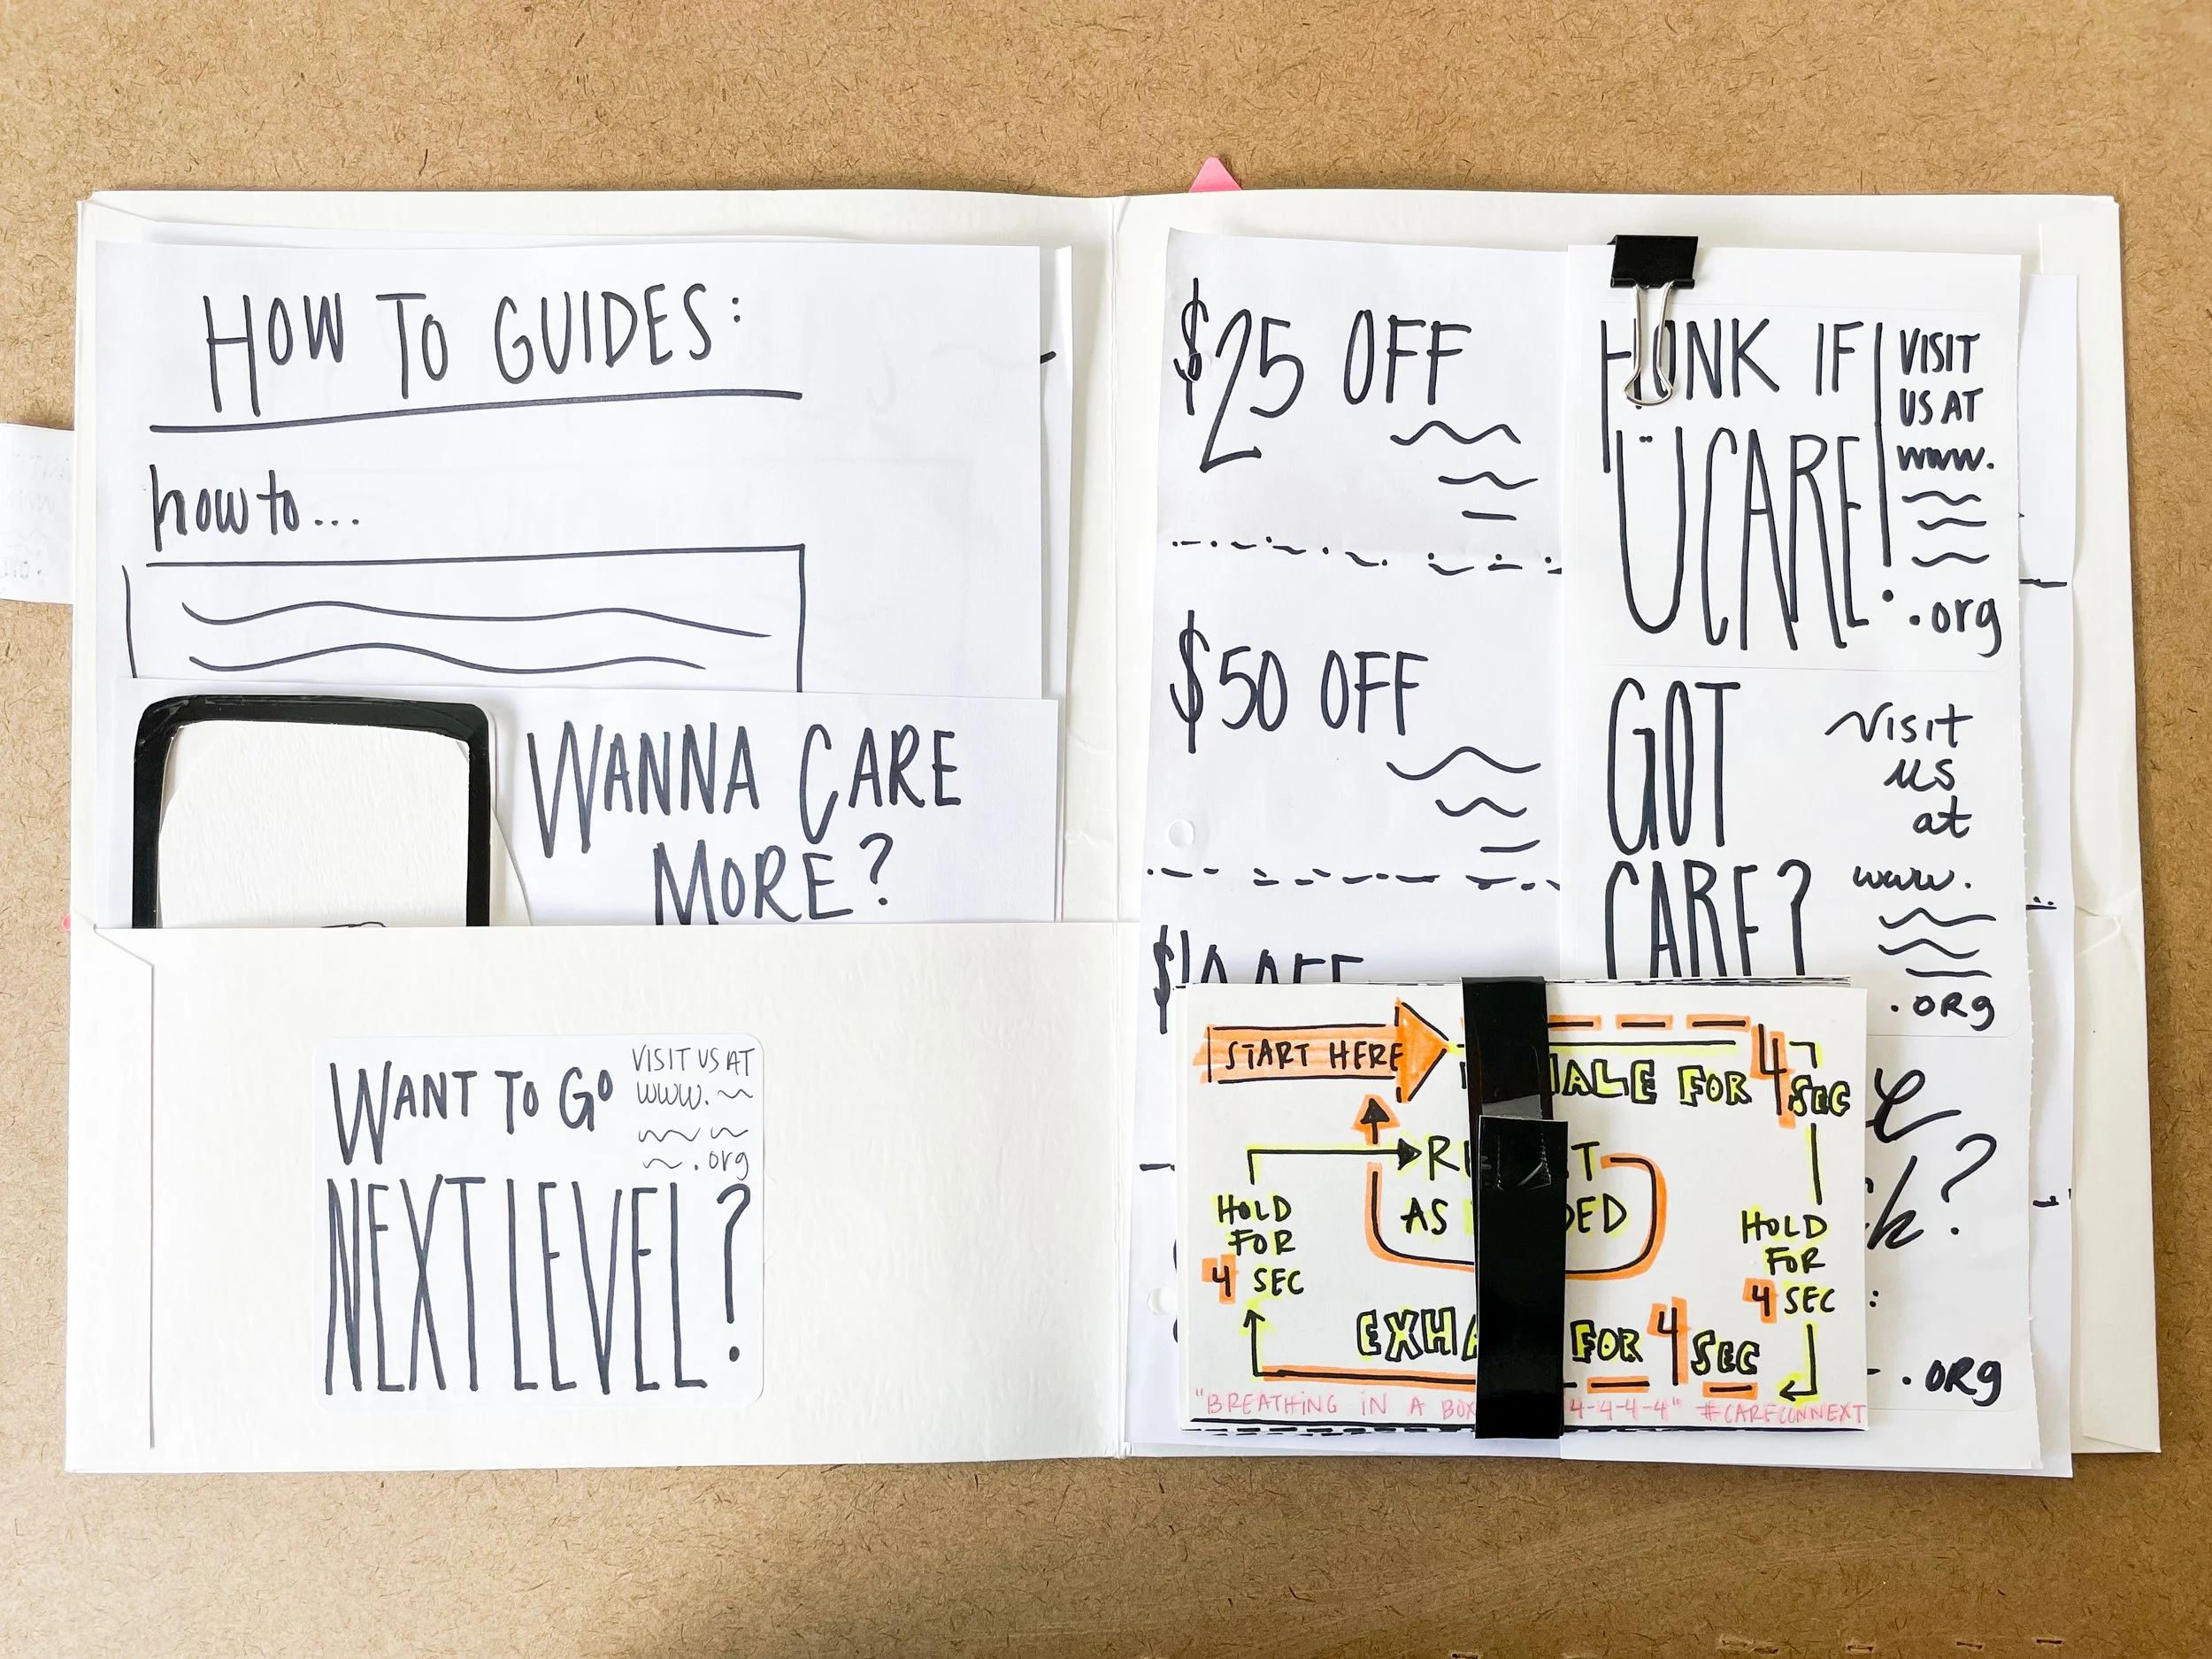 HOW TO GUIDES:
how to...
WANNA CARE
MORE?
WANT TO GO
NEXT LEVEL?
VISIT US AT
www.
.org
$25 OFF
$50 OFF
HONK IF
Ü CARE!
VISIT
US AT
www.
.org
GOT
CARE?
Visit
us
at
www.
.ORg
.ORg
START HERE
FOR 4 SEC
HOLD
FOR
4 SEC
FOR 4 SEC
HOLD
FOR
4 SEC
AS
"BREATHING IN A BOX 4-4-4-4" #CARECONNEXT